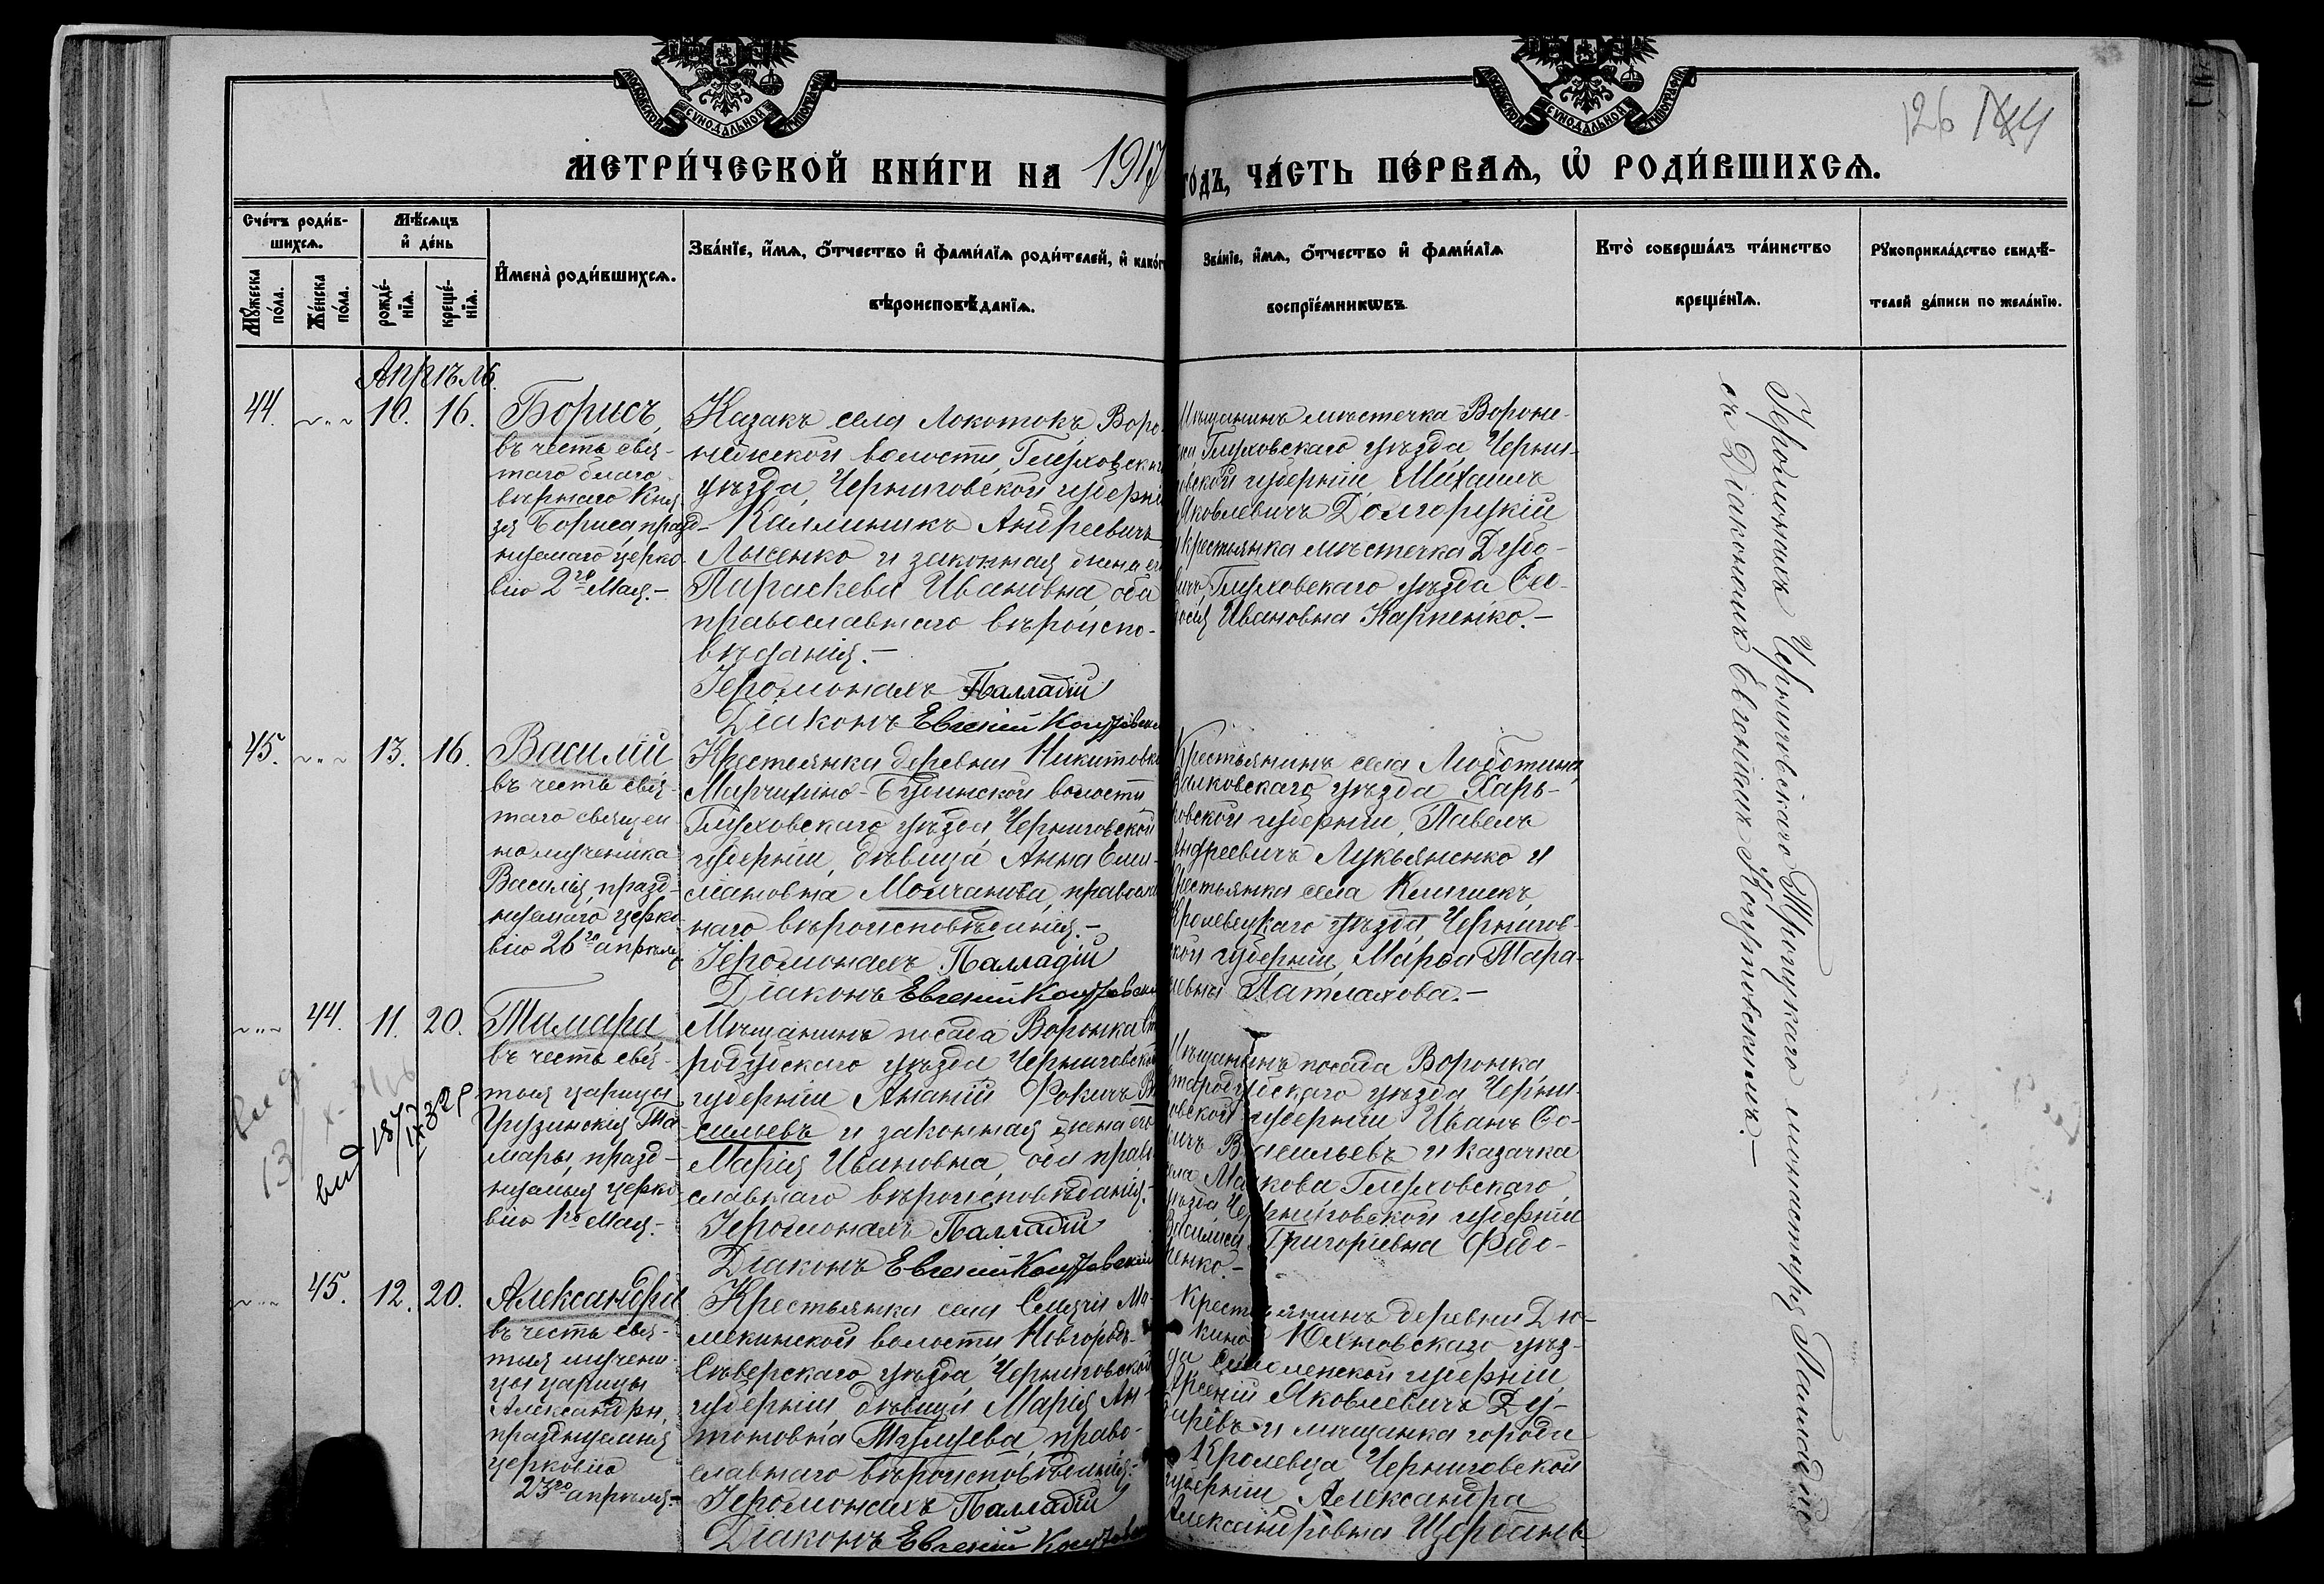 МОСКОВСКОЙ СУНОДАЛЬНОЙ ТИПОГРАФІИ
МОСКОВСКОЙ СУНОДАЛЬНОЙ ТИПОГРАФІИ
126
МЕТРИ́ЧЕСКОЙ КНИ́ГИ НА 1917 ГОДЪ, ЧА́СТЬ ПЕ́РВАѦ, Ѡ҆ РОДИ́ВШИХСѦ.
Сче́тъ роди́в-
шихсѧ.
Мѣ́сѧцъ
и҆ де́нь
Мꙋ́жеска по́ла.
Же́нска по́ла.
рожде́-нїѧ.
креще́-нїѧ.
И҆мена̀ роди́вшихсѧ.
Зва́нїе, и҆́мѧ, ѻ҆́тчество и҆ фами́лїѧ роди́телей, и҆ како́г
вѣроисповѣ́данїѧ.
Зва́нїе, и҆́мѧ, ѻ҆́тчество и҆ фами́лїѧ
воспрїе́мникѡвъ
Кто̀ соверша́лъ та́инство
креще́нїѧ.
Рꙋкоприкла́дство свидѣ́-
телей за́писи по жела́нїю.
Апрѣль.
44.
10. 16.
Борисъ,
въ честь свя-
таго благо-
вѣрнаго Кня-
зя Бориса, празд-
нуемаго церко-
вію 2го Мая.-
Казакъ села Локотокъ Воро-
нежской волости, Глуховска
уѣзда, Черниговской губерні
Каллиникъ Андреевичъ
Лысенко и законная жена ег
Параскева Ивановна, оба
православнаго вѣроиспо-
вѣданія.-
Іеромонахъ Палладій
Діаконъ Евгеній
Мѣщанинъ мѣстечка Вороне-
Глуховскаго уѣзда, Черни-
говской губерніи Михаилъ
Яковлевичъ Долгорукій
и крестьянка мѣстечка Дубо-
вичъ, Глуховскаго уѣзда Ев-
досія Ивановна Карпенко.-
Іеромонахъ Черниговскаго Троицкаго монастыря Палладій
съ Діакономъ Евгеніемъ
45.
13. 16.
Василій
въ честь свя-
таго священ-
номученика
Василія, празд-
нуемаго церко-
вію 26го апрѣля
Крестьянка деревни Никитовки
Марчихино-Будянской волости
Глуховскаго уѣзда Черниговской
губерніи, дѣвица Анна Еми-
ліановна Молчанова, правосла
наго вѣроисповѣданія.-
Іеромонахъ Палладій
Діаконъ Евгеній
Крестьянинъ села Люботина,
Валковскаго уѣзда Харь-
ковской губерніи, Павелъ
Андреевичъ Лукьяненко и
крестьянка села Клишекъ,
Кролевецкаго уѣзда Чернигов-
ской губерніи, Марѳа Тара-
Патлахова.-
44. 11. 20.
Тамара
въ честь свя-
тыя царицы
Грузинскія Та-
мары, празд-
нуемыя церко-
вію 1го Мая.-
Мѣщанинъ посада Воронка Ст
родубскаго уѣзда Черниговской
губерніи Ананій Фокичъ Ва
сильевъ и законная жена его
Марія Ивановна, оба право
славнаго вѣроисповѣданія.-
Іеромонахъ Палладій
Діаконъ Евгеній
Мѣщанинъ посада Воронка
Стародубскаго уѣзда Черни-
говской губерніи Иванъ Фо-
кичъ Васильевъ и казачка
села Маркова Глуховскаго
уѣзда Черниговской губерніи
Василиса Григоріевна Федо-
ренко.-
45. 12. 20.
Александра
въ честь свя-
тыя мучени-
цы царицы
Александры,
празднуемыя
церковію
23го апрѣля.-
Крестьянка села Смячи Ма-
мекинской волости Новгородъ-
Сѣверскаго уѣзда, Черниговской
губерніи дѣвица Марія Ан-
тоновна, право-
славнаго вѣроисповѣданія.-
Іеромонахъ Палладій
Діаконъ Евгеній
Крестьянинъ деревни Дю-
кино Юхновскаго уѣз-
да Смоленской губерніи
Арсеній Яковлевичъ Ду-
и мѣщанка города
Кролевца Черниговской
губерніи Александра
Александровна